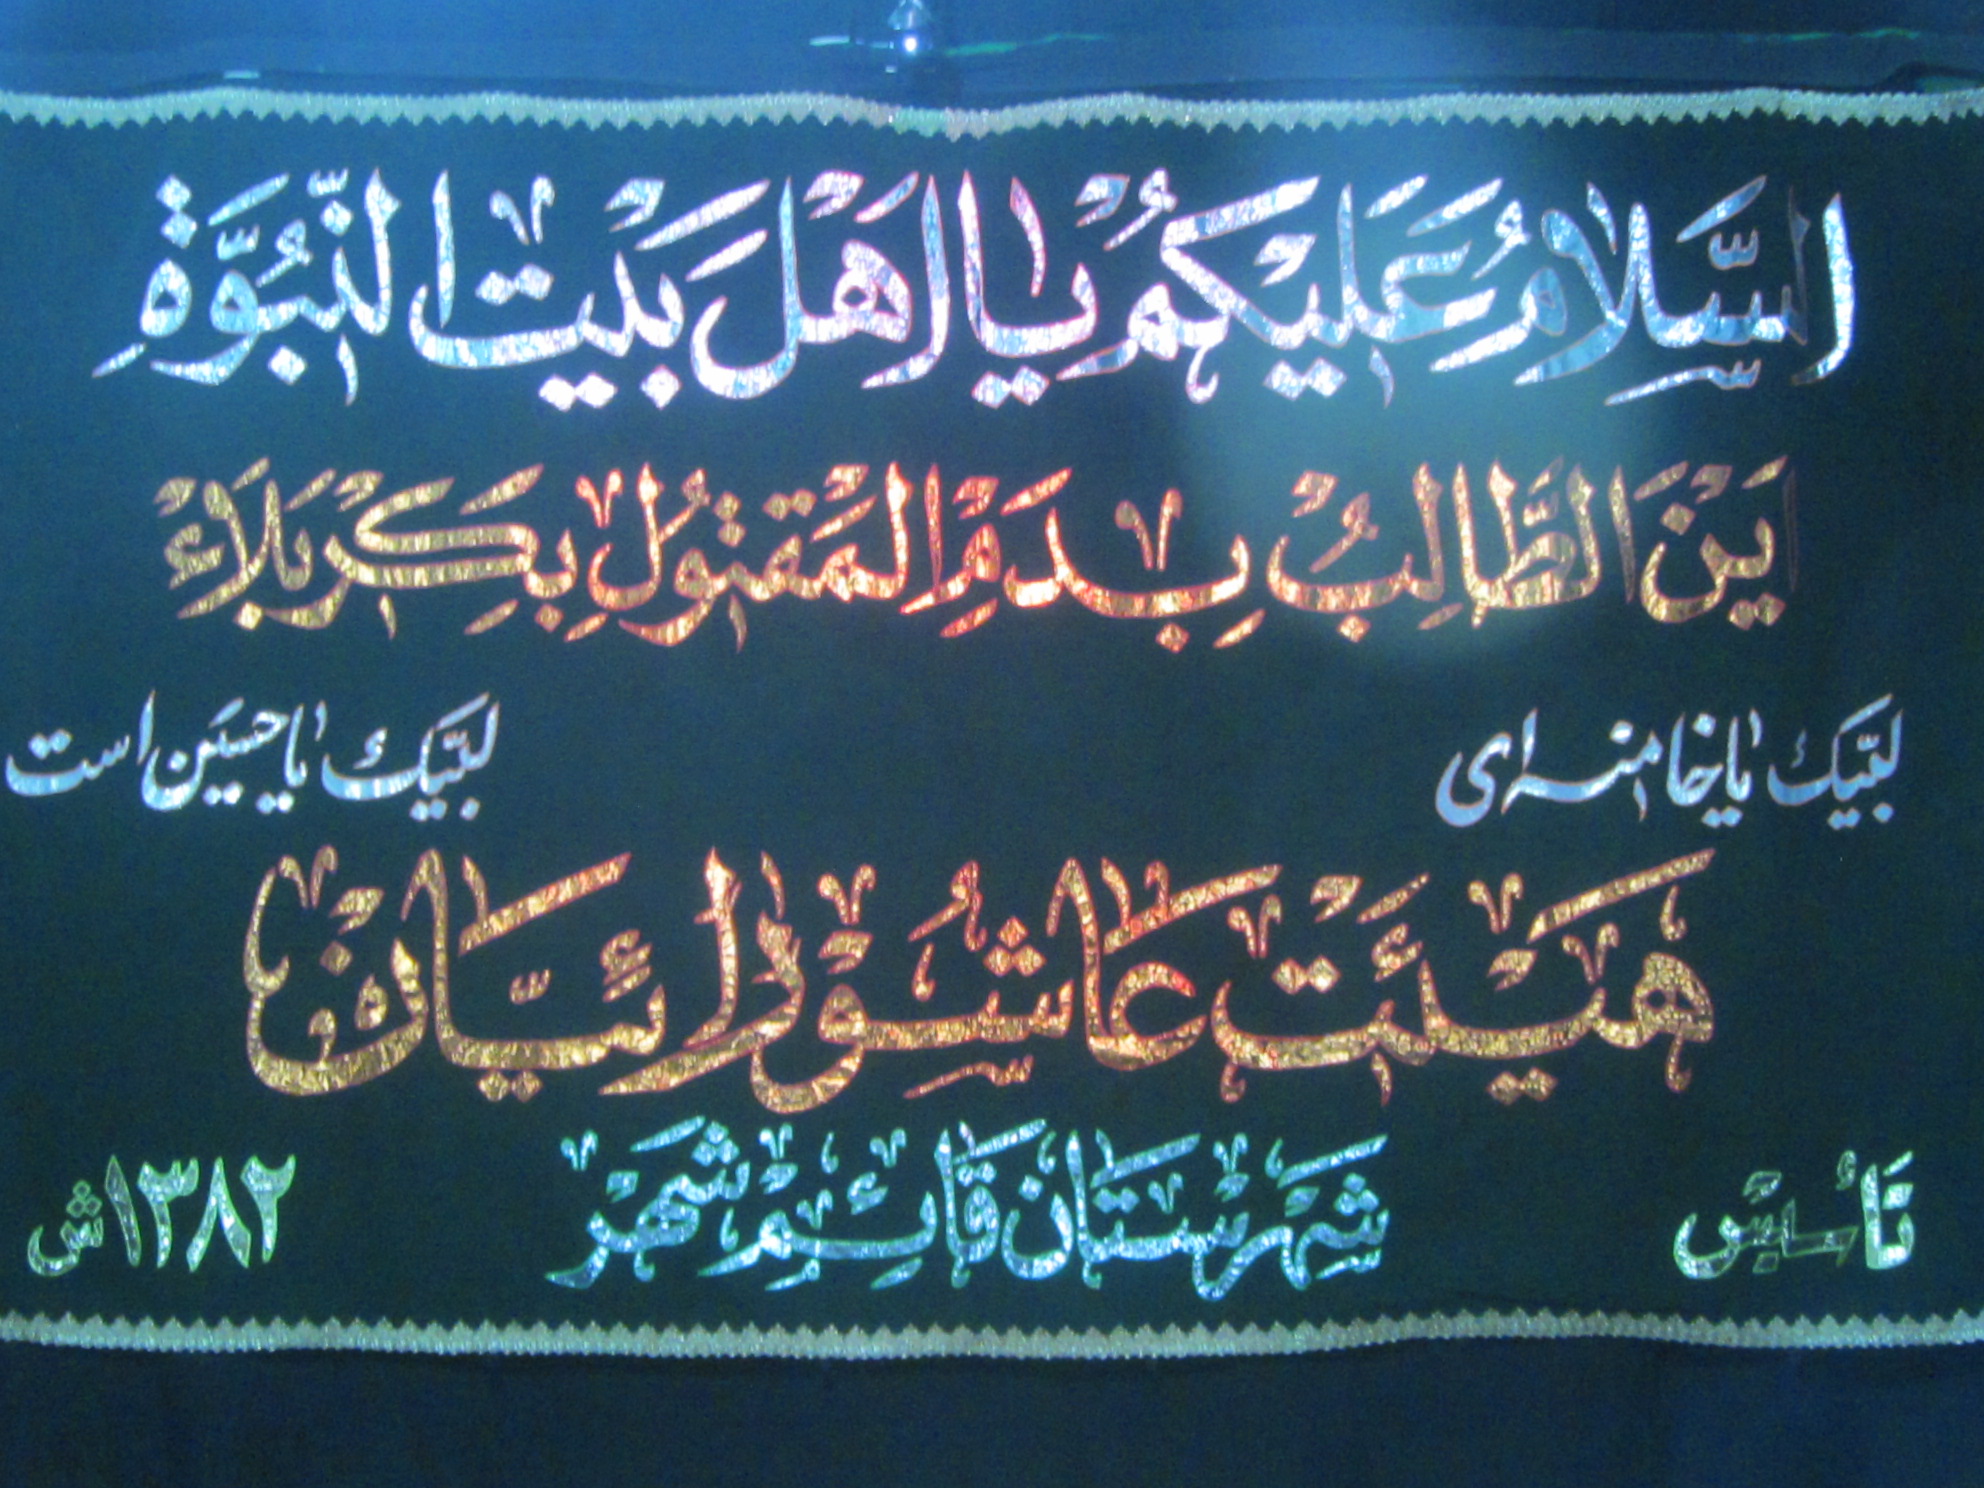 اَلسَّلامُ عَلَیْکُمْ یا اَهْلَ بَیْتِ النُّبُوَّةِ
اَیْنَ الطَّالِبُ بِدَمِ الْمَقْتُولِ بِکَرْبَلاَءْ
لبّیک یا خامنه ای لبّیک یا حسین است
هَیْئَتْ عاشُوْرائیّان
تأسیس شَهْرْستان قائِمْ شَهْر ۱۳۸۲ ش